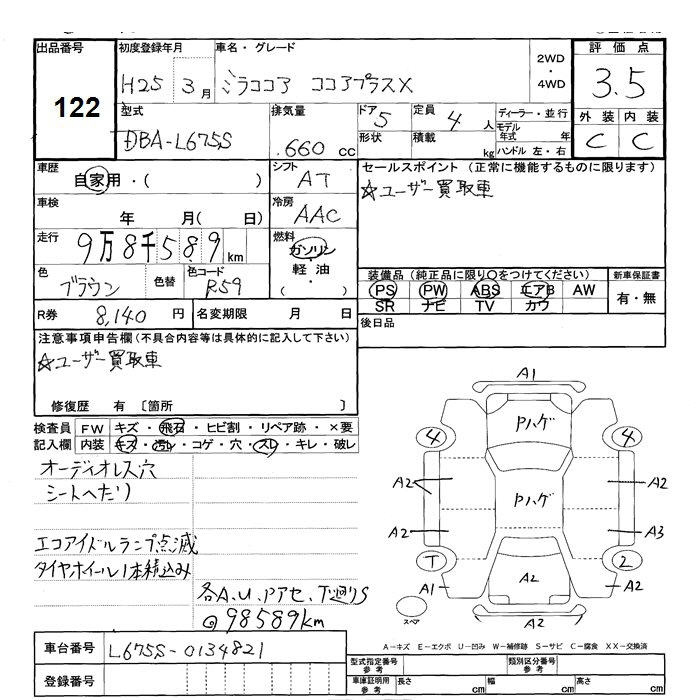 出品番号 初度登録年月 車名・グレード 2WD・4WD 評価点
122 H25 3月 ミラココア ココアプラスX 3.5
型式 排気量 ドア 定員 ディーラー・並行 外装 内装
DBA-L675S .660cc 5 4人 モデル年式 年 C C
形状 積載 kg ハンドル 左・右
車歴 シフト セールスポイント (正常に機能するものに限ります)
自家用・( ) AT ☆ユーザー買取車
車検 冷房
年 月( 日) AAC
走行 燃料
9万8千589km ガソリン
軽・油
・( )
色 色替 色コード 装備品 (純正品に限り○をつけてください) 新車保証書
ブラウン R59 PS PW ABS エアB AW 有・無
SR ナビ TV カワ
R券 8,140円 名変期限 月 日 後日品
注意事項申告欄(不具合内容等は具体的に記入して下さい)
☆ユーザー買取車
修復歴 有 〔箇所 〕
検査員 FW キズ・飛石・ヒビ割・リペア跡・×要
記入欄 内装 キズ・汚レ・コゲ・穴・スレ・キレ・破レ
オーディオレス穴
シートへたり
エコアイドルランプ点滅
タイヤホイール1本積込み
各A.U.Pアセ、下廻りS
@98589km
A1
Pハゲ
4 4
A2 Pハゲ A2
A2 A3
T 2
A1 A2 A2
スペア A2
A-キズ E-エクボ U-凹み W-補修跡 S-サビ C-腐食 XX-交換済
車台番号 L675S-0134821
型式指定番号 参考 類別区分番号 参考
登録番号 車庫証明用 参考 長さ cm 幅 cm 高さ cm